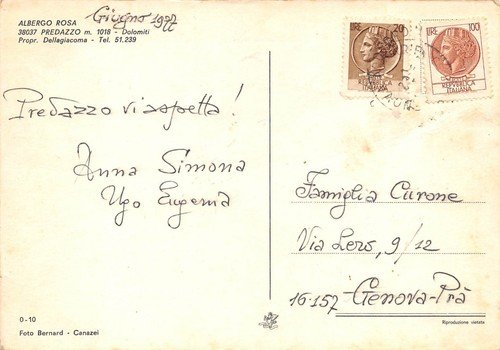 ALBERGO ROSA
38037 PREDAZZO m. 1018 - Dolomiti
Propr. Dellagiacoma - Tel. 51.239
Giugno 1977
LIRE 20
REPUBBLICA
ITALIANA
LIRE 100
REPUBBLICA
ITALIANA
Predazzo vi aspetta!
Anna Simona
Ugo Eugenia
Famiglia Curone
Via Lero, 9/12
16157 Genova-Prà
0-10
Foto Bernard - Canazei
Riproduzione vietata